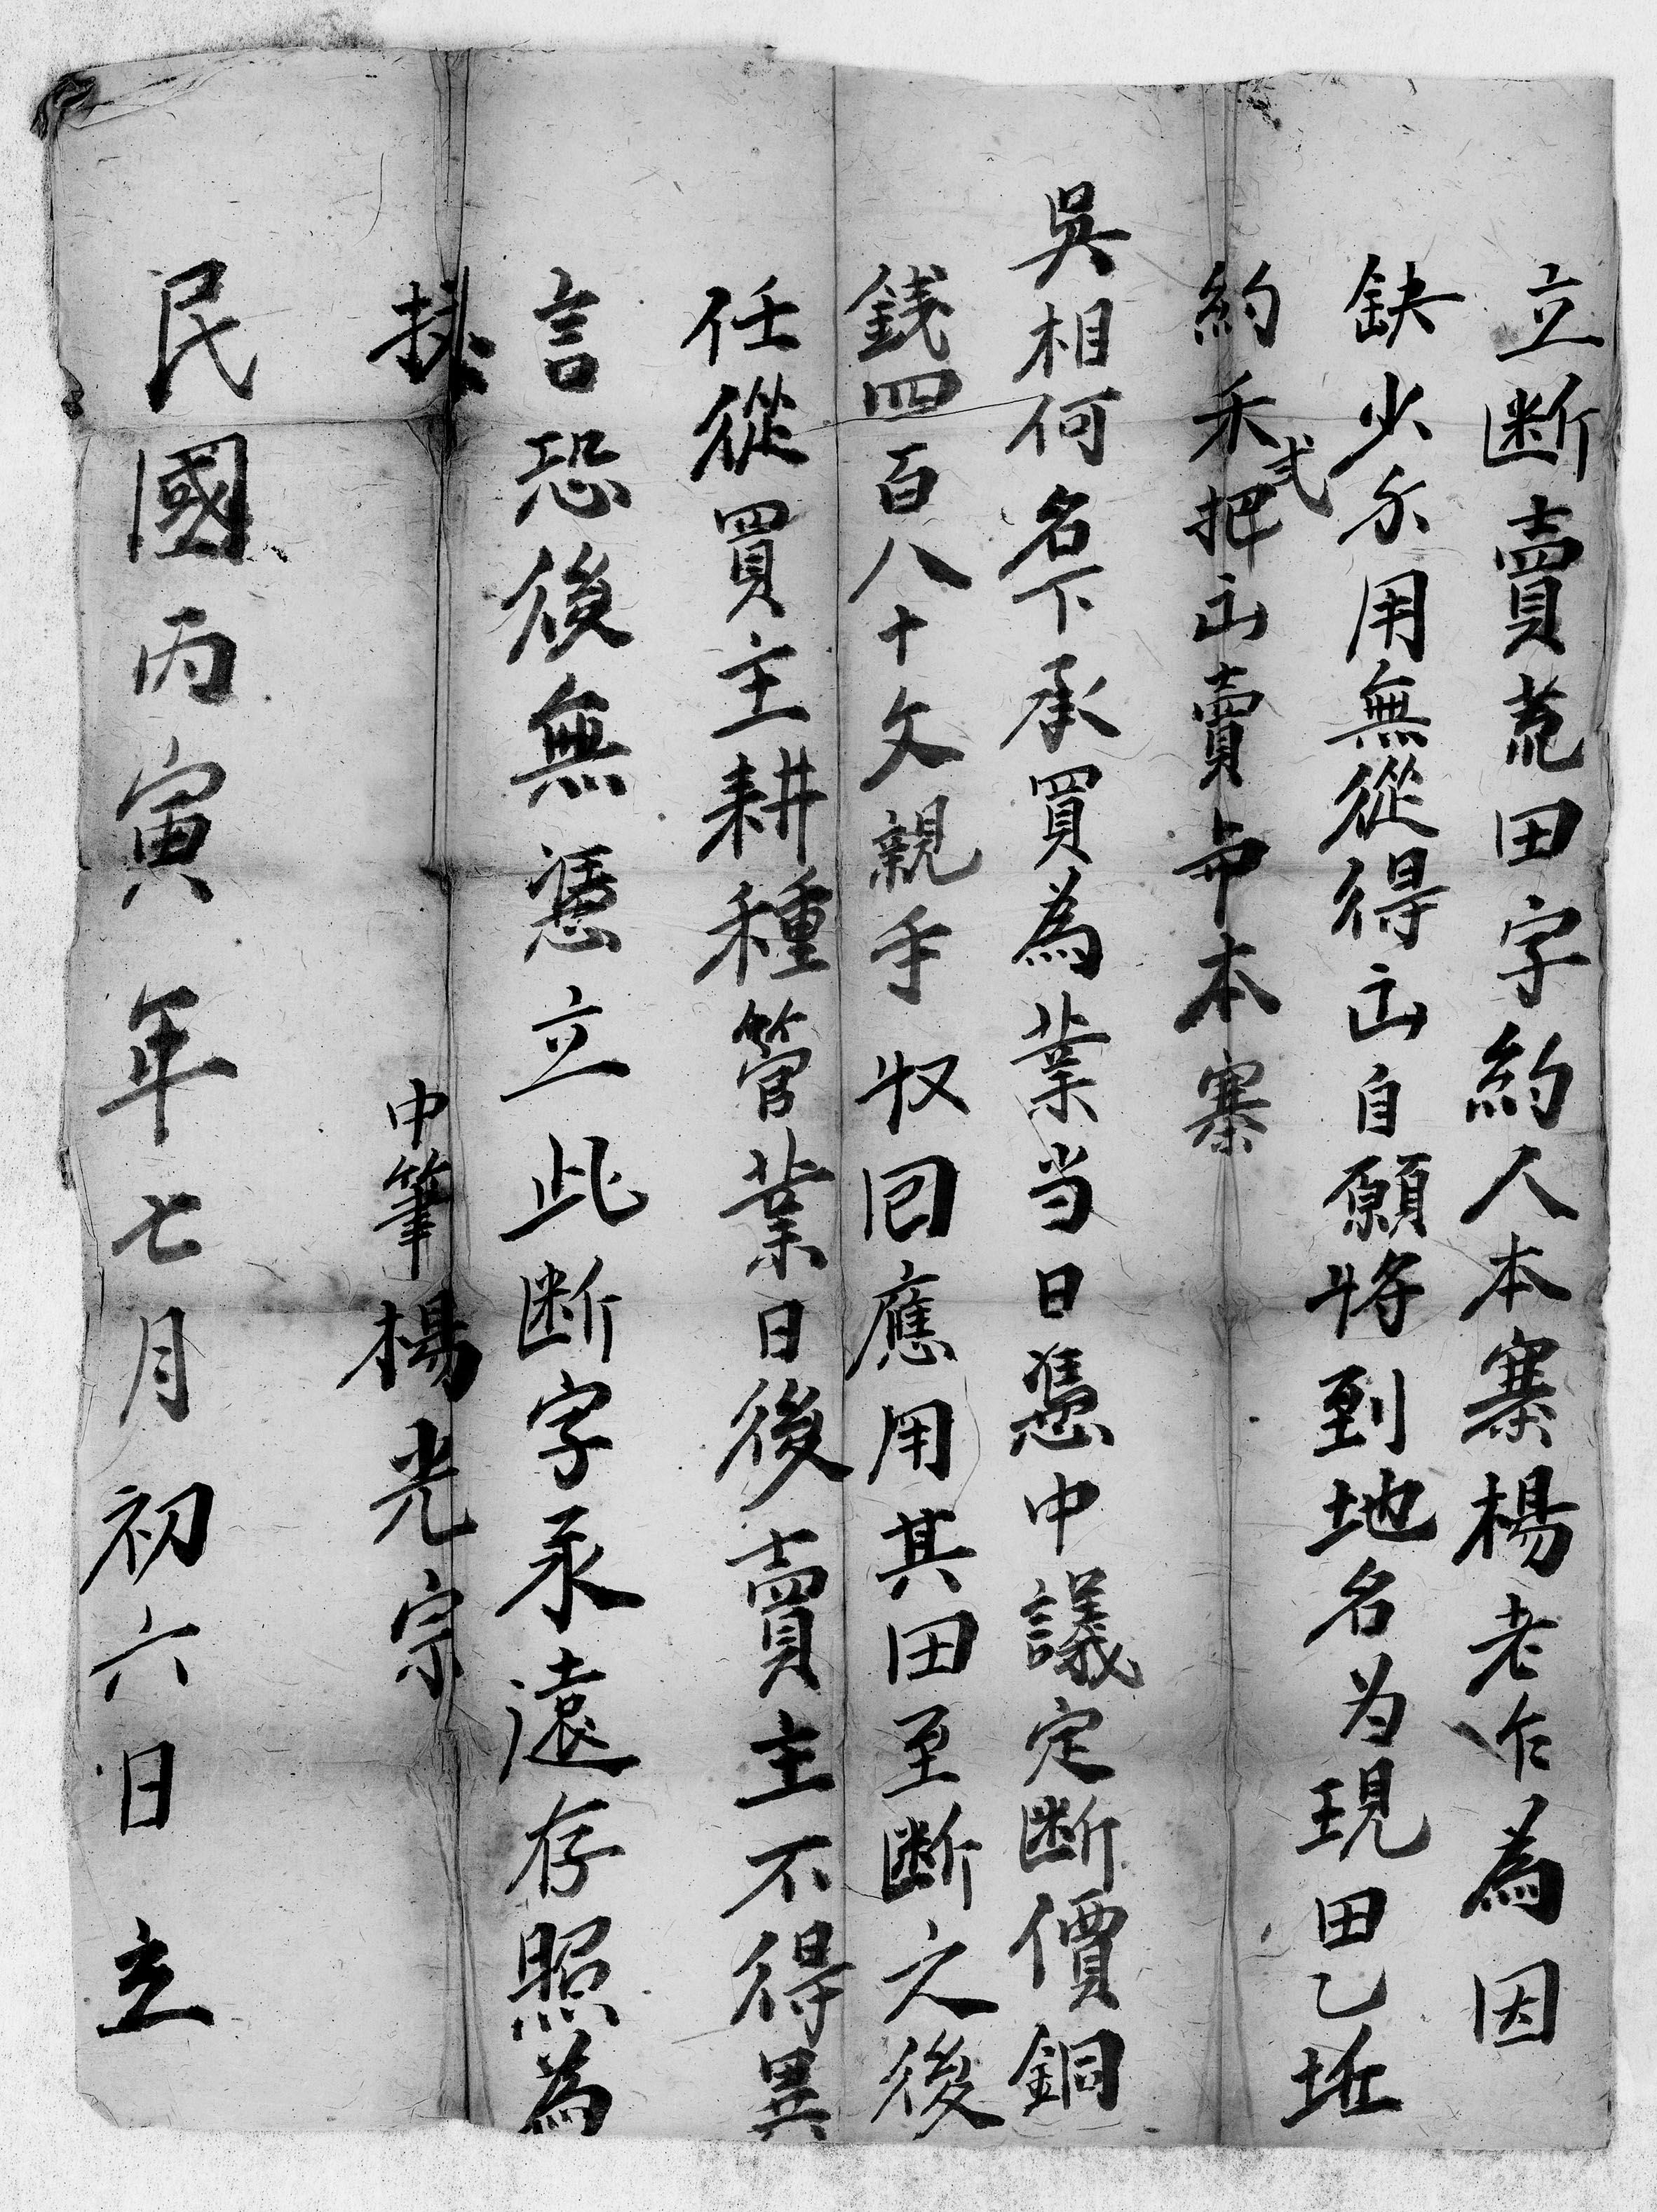 立断賣荒田字約人本寨楊老乍為因
缺少尓用無從得出自願将到地名为現田乙坵
約禾弍把出賣与本寨
吳相何名下承買為業当日憑中議定断價銅
銭四百八十文親手收囘應用其田至断之後
任從買主耕種管業日後賣主不得異
言恐後無憑立此断字永遠存照為
拠
中筆楊光宗
民國丙寅年七月初六日立